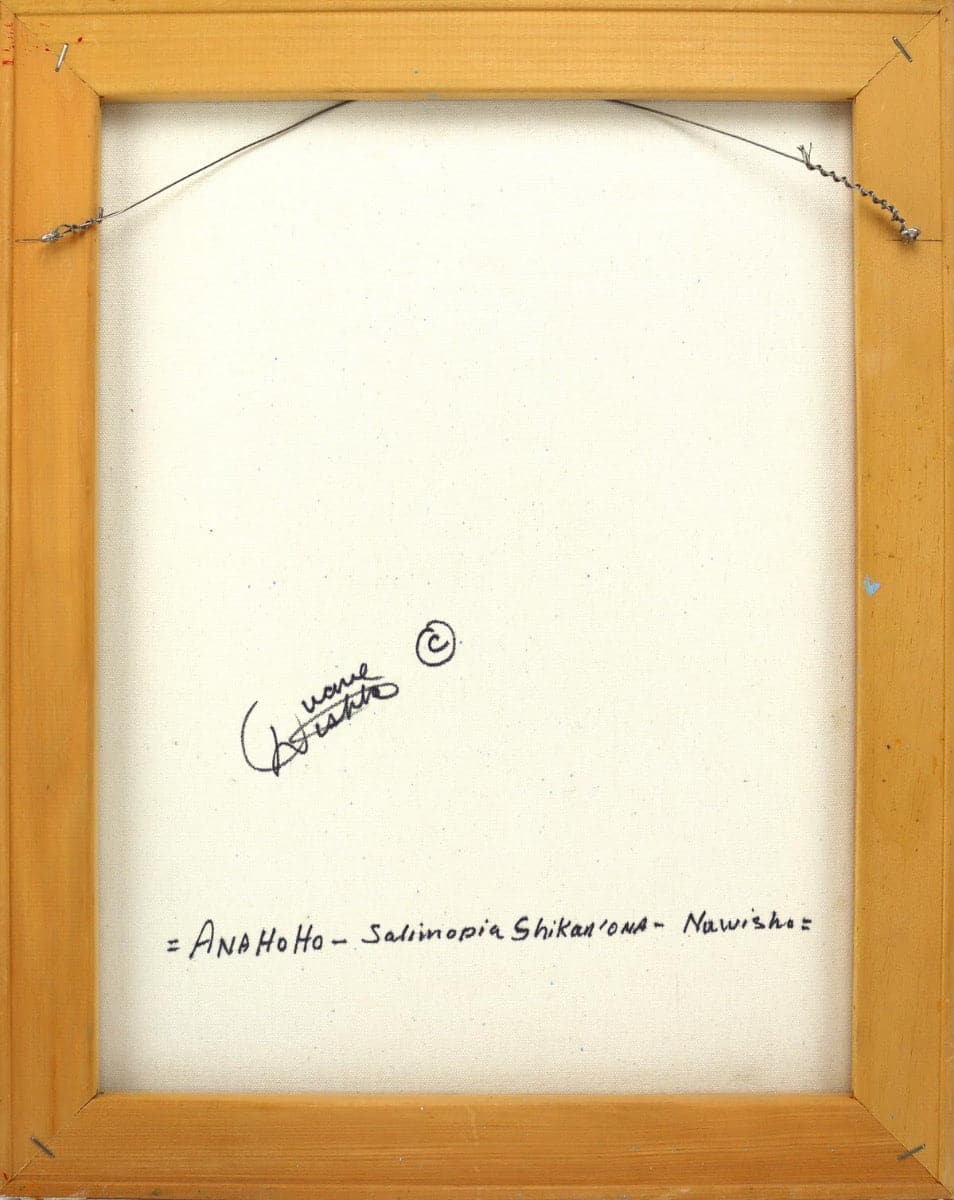 Duane
Dishta
©
= ANAHOHO - Salimopia Shikan'ONA - Nawisho =